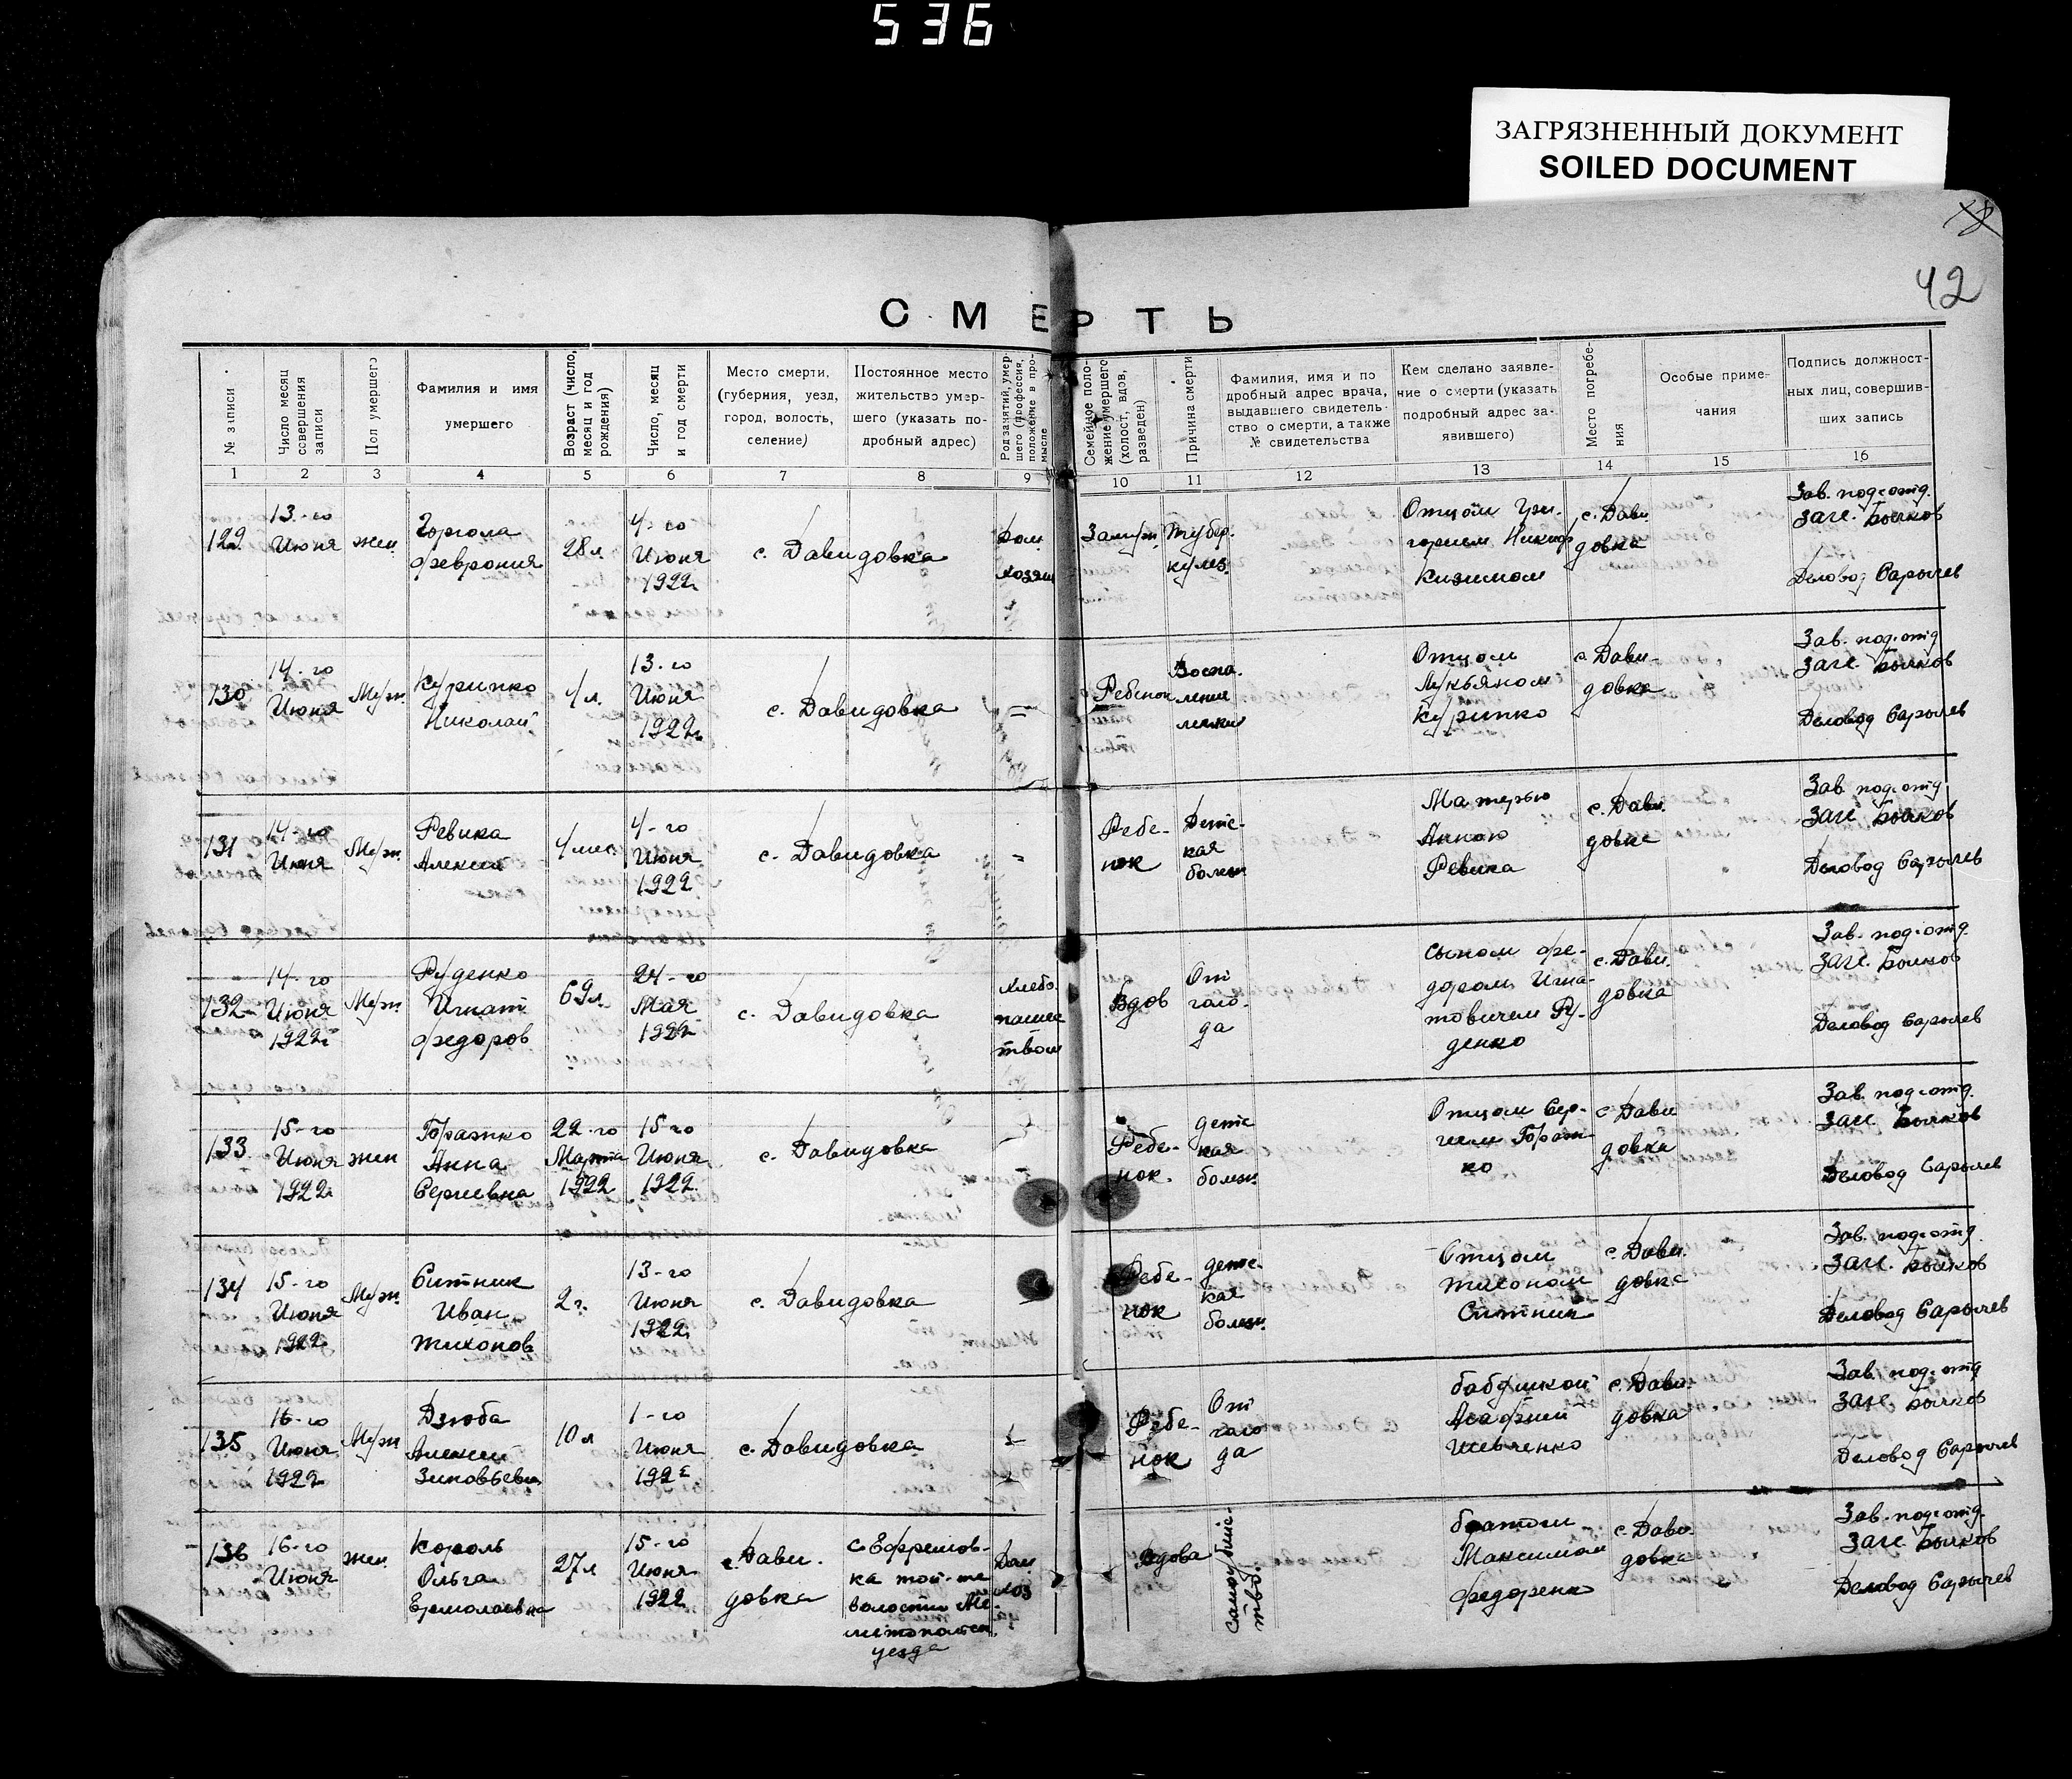 536
ЗАГРЯЗНЕННЫЙ ДОКУМЕНТ
SOILED DOCUMENT
42
СМЕРТЬ
№ записи
Число месяц
совершения
записи
Пол умершего
Фамилия и имя
умершего
Возраст (число,
месяц и год
рождения)
Число, месяц
и год смерти
Место смерти,
(губерния, уезд,
город, волость,
селение)
Постоянное место
жительство умер-
шего (указать по-
дробный адрес)
Род занятий, умер-
шего (профессия,
положение в про-
мысле
Семейное поло-
жение умершего
(холост, вдов,
разведен)
Причина смерти
Фамилия, имя и по
дробный адрес врача,
выдавшего свидетель-
ство о смерти, а также
№ свидетельства
Кем сделано заявле-
ние о смерти (указать
подробный адрес за-
явившего)
Место погребе-
ния
Особые приме-
чания
Подпись должност-
ных лиц, совершив-
ших запись
1 2 3 4 5 6 7 8 9 10 11 12 13 14 15 16
129
13-го
Июня
жен.
Феврония
28 л
4-го
Июня
1922
с. Давидовка
Дом.
хозяй
Замуж.
Тубер.
кулез.
Отцом
с. Дави
довка
Зав. подотд.
загс. Бычков
Деловод Сарычев
130
14-го
Июня
Муж.
Курипко
Николай
4 л.
13-го
Июня
1922
с. Давидовка
=
Ребенок
Воспа.
ления
легких
Отцом
Лукьяном
Курипко
с. Дави-
довка
Зав. подотд
загс. Бычков
Деловод Сарычев
131
14-го
Июня
Муж.
Ревика
Алексей
4 мес.
4-го
Июня
1922
с. Давидовка
Ребе-
нок
Детс-
кая
болезн
Матерью
Анною
Ревика
с. Дави
довка
Зав. подотд
загс Бычков
Деловод Сарычев
132
14-го
Июня
1922
Муж.
Руденко
Игнат
Федоров
69 л.
24-го
Мая
1922
с. Давидовка
Хлебо.
пашес
твом
Вдов
От
голо-
да
сыном Фе-
дором Игна-
товичем Ру-
денко
с. Дави.
довка
Зав. подотд.
загс. Бычков
Деловод Сарычев
133
15-го
Июня
1922
жен
Горажко
Анна
Сергеевна
22-го
Марта
1922
15-го
Июня
1922
с. Давидовка
Ребе-
нок.
детс
кая
болезн.
Отцом Сер-
геем Гораж-
ко
с. Дави
довка
Зав. подотд.
загс Бычков
Деловод Сарычев
134
15-го
Июня
1922
Муж.
Ситник
Иван
Тихонов
2 г.
13-го
Июня
1922
с. Давидовка
Ребе-
нок
детс-
кая
болезн.
Отцом
Тихоном
Ситник
с. Дави.
довка
Зав. подотд.
загс. Бычков
Деловод Сарычев
135
16-го
Июня
1922
Муж
Дзюба
Алексей
Зиновьевич
10 л
1-го
Июня
1922
с. Давидовка
Ребе-
нок
От
голо
да
бабушкой
Агафией
Шевченко
с. Дави.
довка
Зав. подотд
загс. Бычков
Деловод Сарычев
136
16-го
Июня
жен.
Король
Ольга
Ермолаевна
27 л
15-го
Июня
1922
с. Дави.
довка
с Ефремов-
ка той-же
волости Ме-
литопольск.
уезда
Дом.
хоз
Вдова
Самоубийс-
твом
братом
Максимом
Федоренко
с. Дави.
довка
Зав. подотд.
загс. Бычков
Деловод Сарычев